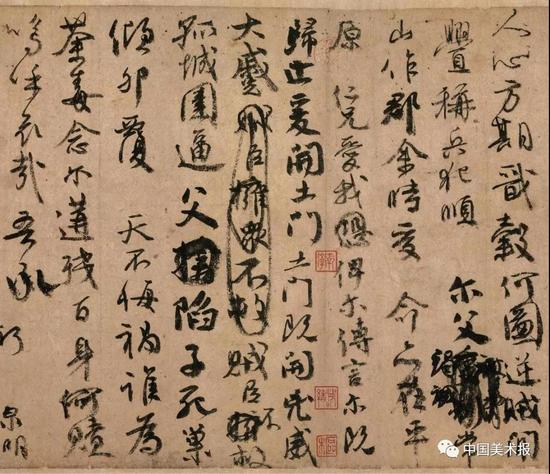 人心方期戩穀何圖逆賊間
釁稱兵犯順 尓父竭誠常
山作郡余時受 命亦在平
原 仁兄愛我恐俾尓傳言尓既
歸止爰開土門土門既開兇威
大蹙賊臣擁眾不救賊臣不擁救
孤城圍逼父擒陷子死巢
傾卵覆 天不悔禍誰為
荼毒念尓遘殘百身何贖
嗚呼哀哉吾承
泉明
中国美术报